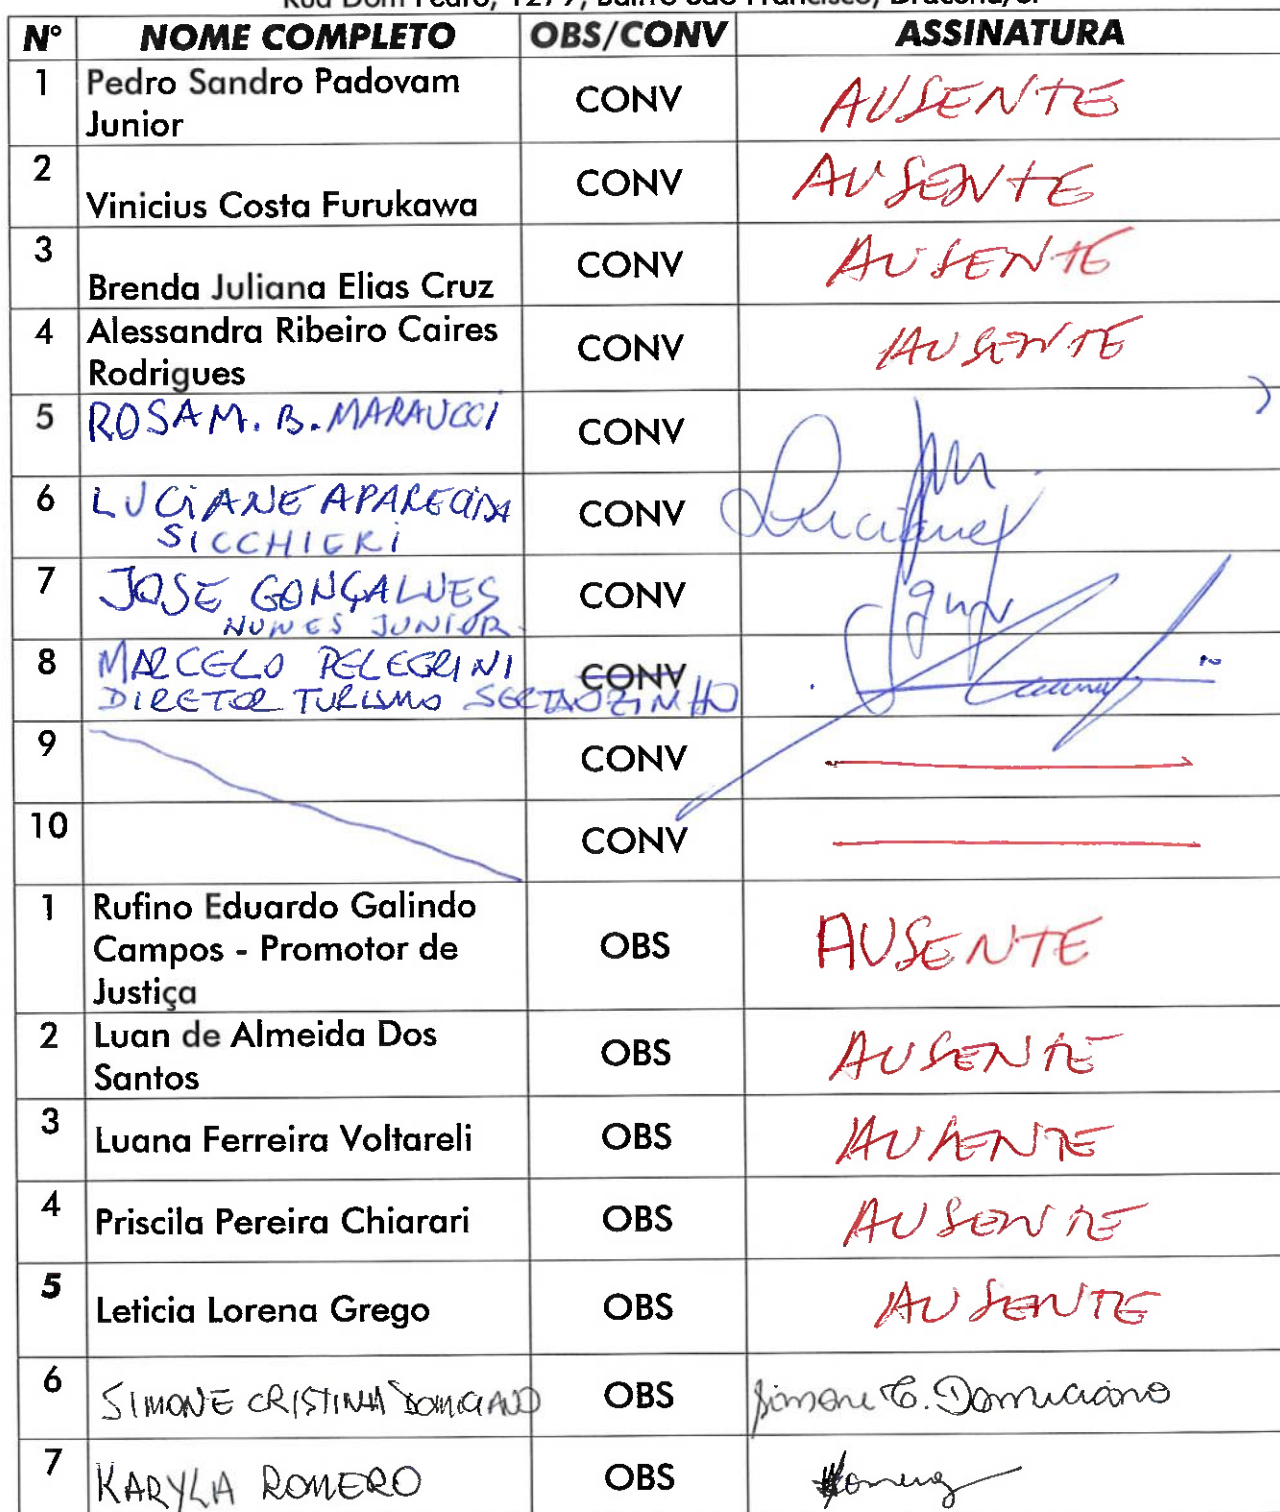 Rua Dom Pedro, 1279, Bairro São Francisco, Dracena/SP
Nº NOME COMPLETO OBS/CONV ASSINATURA
1 Pedro Sandro Padovam
Junior CONV AUSENTE
2 Vinicius Costa Furukawa CONV AUSENTE
3 Brenda Juliana Elias Cruz CONV AUSENTE
4 Alessandra Ribeiro Caires
Rodrigues CONV AUSENTE
5 ROSA M. B. MARAUCCI CONV
6 LUCIANE APARECIDA
SICCHIERI CONV Luciane
7 JOSE GONÇALVES
NUNES JUNIOR CONV
8 MARCELO PELEGRINI CONV
DIRETOR TURISMO SERTAOZINHO
9 CONV
10 CONV
1 Rufino Eduardo Galindo
Campos - Promotor de
Justiça OBS AUSENTE
2 Luan de Almeida Dos
Santos OBS AUSENTE
3 Luana Ferreira Voltareli OBS AUSENTE
4 Priscila Pereira Chiarari OBS AUSENTE
5 Leticia Lorena Grego OBS AUSENTE
6 SIMONE CRISTINA DOMICIANO OBS Simone C. Domiciano
7 KARYLA ROMERO OBS